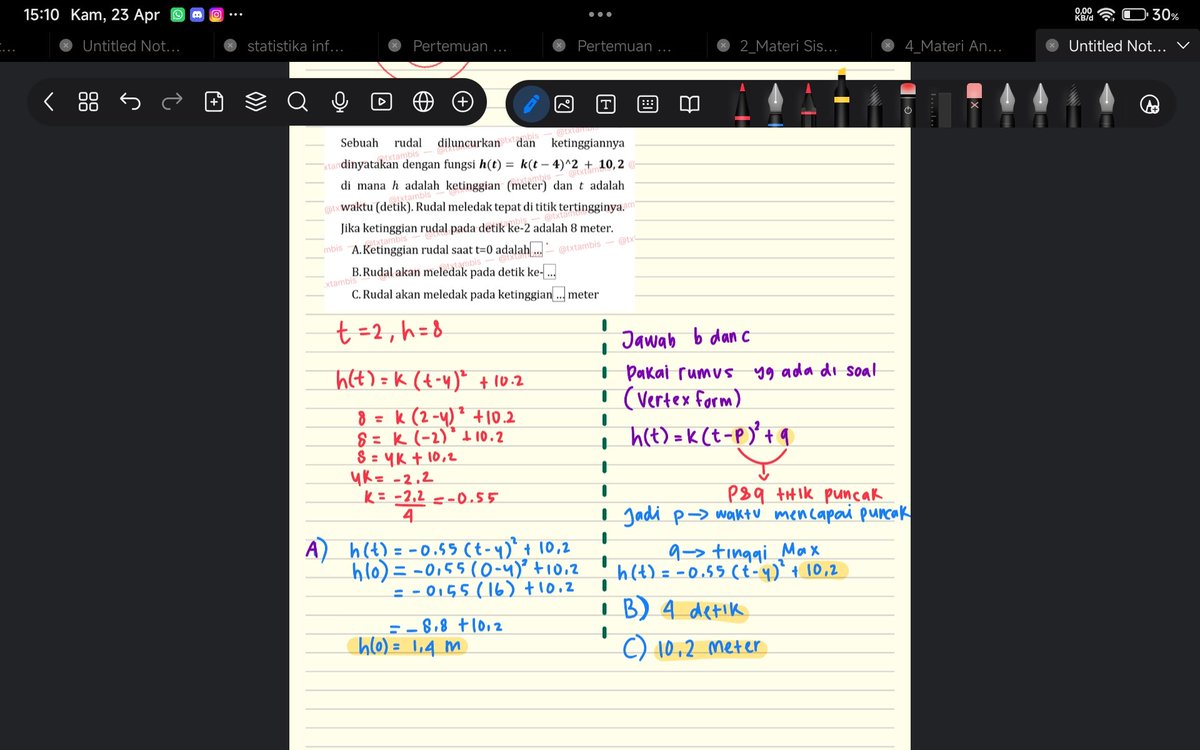 15:10 Kam, 23 Apr
0,00 KB/d 30%
Untitled Not...
statistika inf...
Pertemuan ...
Pertemuan ...
2_Materi Sis...
4_Materi An...
Untitled Not...
Sebuah rudal diluncurkan dan ketinggiannya
dinyatakan dengan fungsi h(t) = k(t – 4)^2 + 10,2
di mana h adalah ketinggian (meter) dan t adalah
waktu (detik). Rudal meledak tepat di titik tertingginya.
Jika ketinggian rudal pada detik ke-2 adalah 8 meter.
A. Ketinggian rudal saat t=0 adalah ...
B. Rudal akan meledak pada detik ke- ...
C. Rudal akan meledak pada ketinggian ... meter
@txtambis
t = 2, h = 8
h(t) = k (t-4)² + 10.2
8 = k (2-4)² + 10.2
8 = k (-2)² + 10.2
8 = 4k + 10,2
4k = -2.2
k = -2,2 = -0.55
4
A) h(t) = -0.55 (t-4)² + 10,2
h(0) = -0,55 (0-4)² + 10,2
= -0,55 (16) + 10.2
= -8,8 + 10,2
h(0) = 1,4 m
Jawab b dan c
Pakai rumus yg ada di soal
(Vertex form)
h(t) = k (t-p)² + q
p&q titik puncak
Jadi p → waktu mencapai puncak
q → tinggi Max
h(t) = -0.55 (t-4)² + 10,2
B) 4 detik
C) 10,2 meter